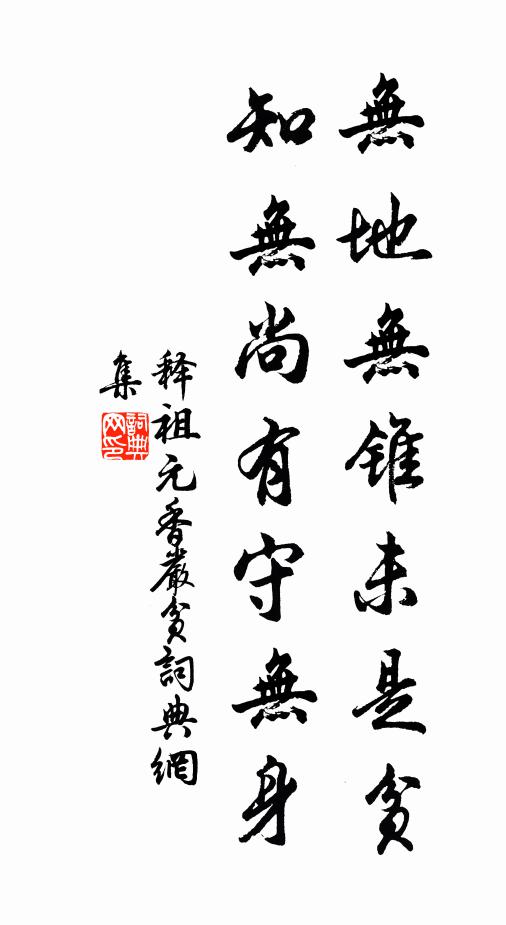 無地無錐未是貧
知無尚有守無身
释祖元香嚴貧詞典網
集
詞典
网印